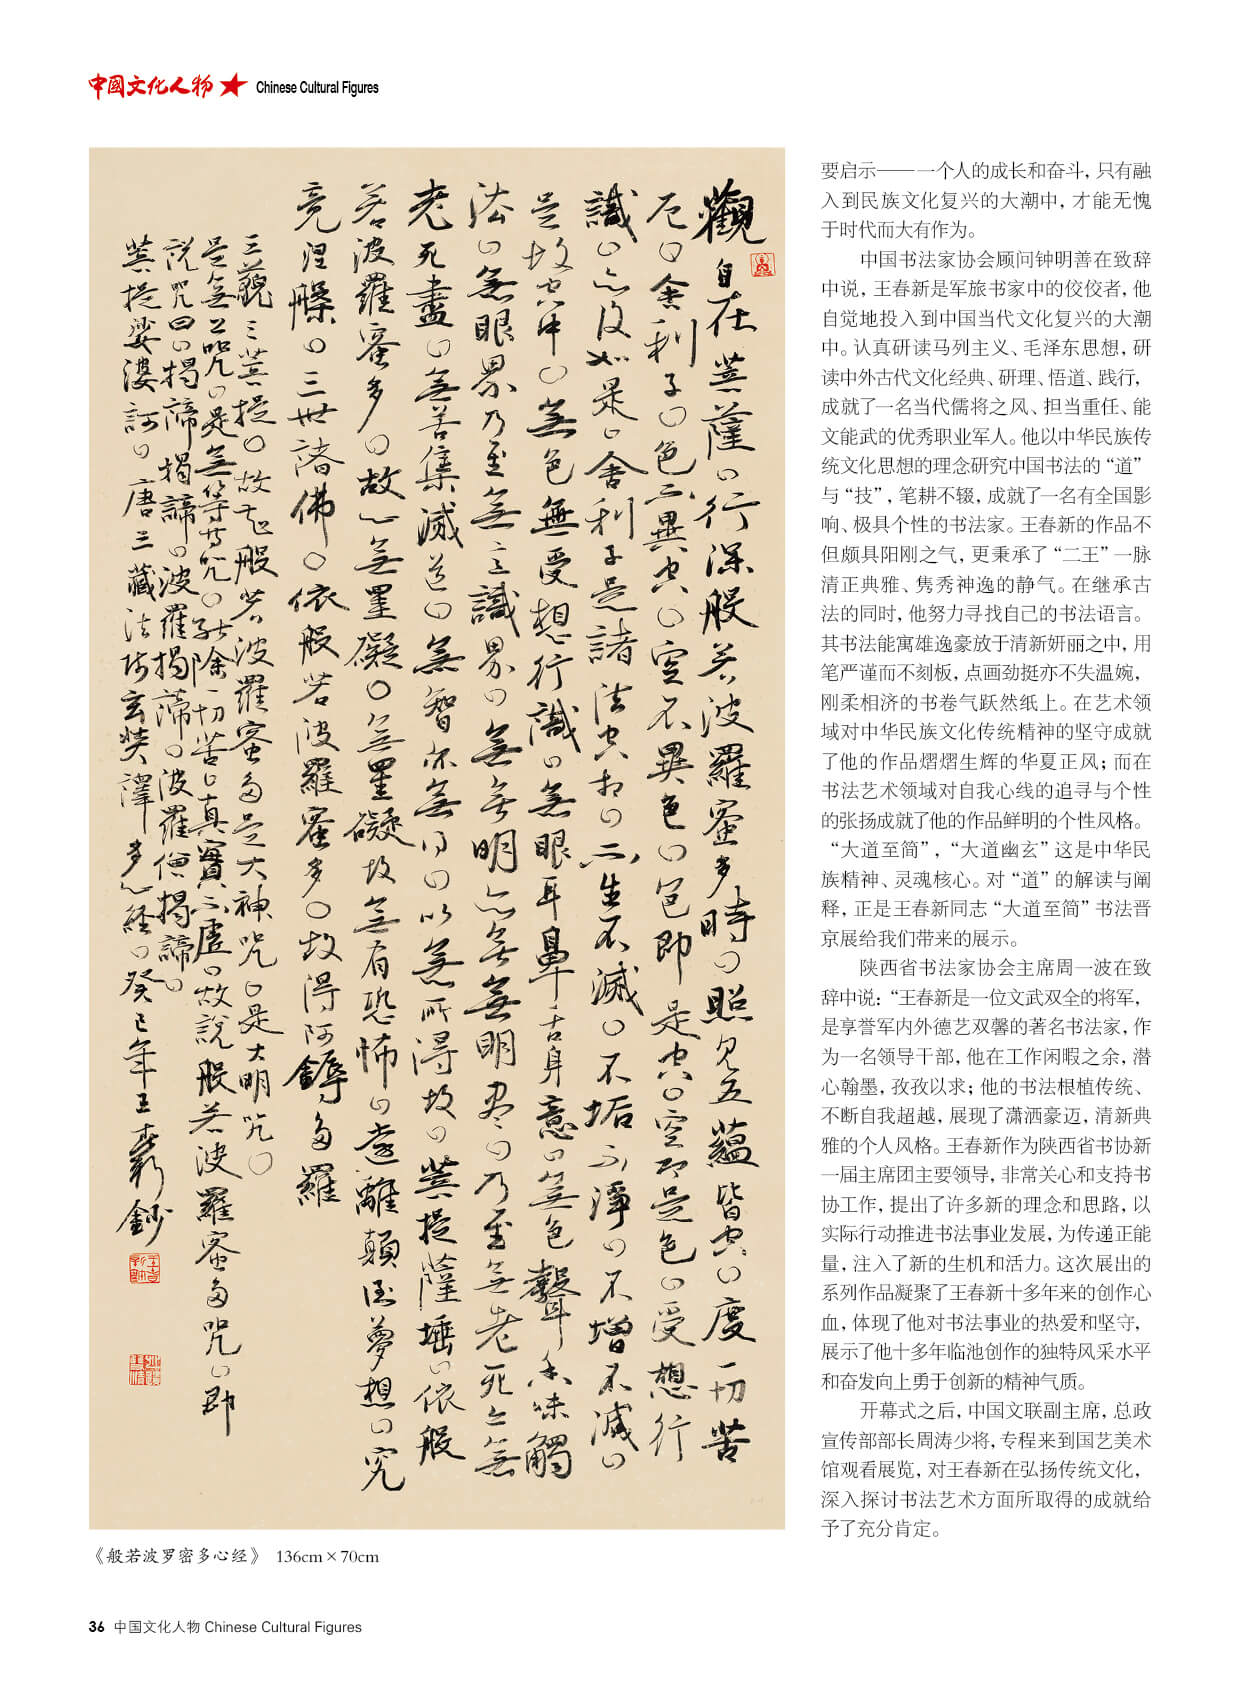 中國文化人物 Chinese Cultural Figures
觀自在菩薩行深般若波羅蜜多時照見五蘊皆空度一切苦
厄舍利子色不異空空不異色色即是空空即是色受想行
識亦復如是舍利子是諸法空相不生不滅不垢不淨不增不減
是故空中無色無受想行識無眼耳鼻舌身意無色聲香味觸
法無眼界乃至無意識界無無明亦無無明盡乃至無老死亦無
老死盡無苦集滅道無智亦無得以無所得故菩提薩埵依般
若波羅蜜多故心無罣礙無罣礙故無有恐怖遠離顛倒夢想究
竟涅槃三世諸佛依般若波羅蜜多故得阿鎒多羅
三藐三菩提故知般若波羅蜜多是大神咒是大明咒
是無上咒是無等等咒能除一切苦真實不虛故說般若波羅蜜多咒即
說咒曰揭諦揭諦波羅揭諦波羅僧揭諦
菩提娑婆訶唐三藏法師玄奘譯多心經癸巳年王春新鈔
《般若波罗密多心经》 136cm×70cm
要启示——一个人的成长和奋斗，只有融
入到民族文化复兴的大潮中，才能无愧
于时代而大有作为。
中国书法家协会顾问钟明善在致辞
中说，王春新是军旅书家中的佼佼者，他
自觉地投入到中国当代文化复兴的大潮
中。认真研读马列主义、毛泽东思想，研
读中外古代文化经典、研理、悟道、践行，
成就了一名当代儒将之风、担当重任、能
文能武的优秀职业军人。他以中华民族传
统文化思想的理念研究中国书法的“道”
与“技”，笔耕不辍，成就了一名有全国影
响、极具个性的书法家。王春新的作品不
但颇具阳刚之气，更秉承了“二王”一脉
清正典雅、隽秀神逸的静气。在继承古
法的同时，他努力寻找自己的书法语言。
其书法能寓雄逸豪放于清新妍丽之中，用
笔严谨而不刻板，点画劲挺亦不失温婉，
刚柔相济的书卷气跃然纸上。在艺术领
域对中华民族文化传统精神的坚守成就
了他的作品熠熠生辉的华夏正风；而在
书法艺术领域对自我心线的追寻与个性
的张扬成就了他的作品鲜明的个性风格。
“大道至简”，“大道幽玄”这是中华民
族精神、灵魂核心。对“道”的解读与阐
释，正是王春新同志“大道至简”书法晋
京展给我们带来的展示。
陕西省书法家协会主席周一波在致
辞中说：“王春新是一位文武双全的将军，
是享誉军内外德艺双馨的著名书法家，作
为一名领导干部，他在工作闲暇之余，潜
心翰墨，孜孜以求；他的书法根植传统、
不断自我超越，展现了潇洒豪迈，清新典
雅的个人风格。王春新作为陕西省书协新
一届主席团主要领导，非常关心和支持书
协工作，提出了许多新的理念和思路，以
实际行动推进书法事业发展，为传递正能
量，注入了新的生机和活力。这次展出的
系列作品凝聚了王春新十多年来的创作心
血，体现了他对书法事业的热爱和坚守，
展示了他十多年临池创作的独特风采水平
和奋发向上勇于创新的精神气质。
开幕式之后，中国文联副主席，总政
宣传部部长周涛少将，专程来到国艺美术
馆观看展览，对王春新在弘扬传统文化，
深入探讨书法艺术方面所取得的成就给
予了充分肯定。
36 中国文化人物 Chinese Cultural Figures